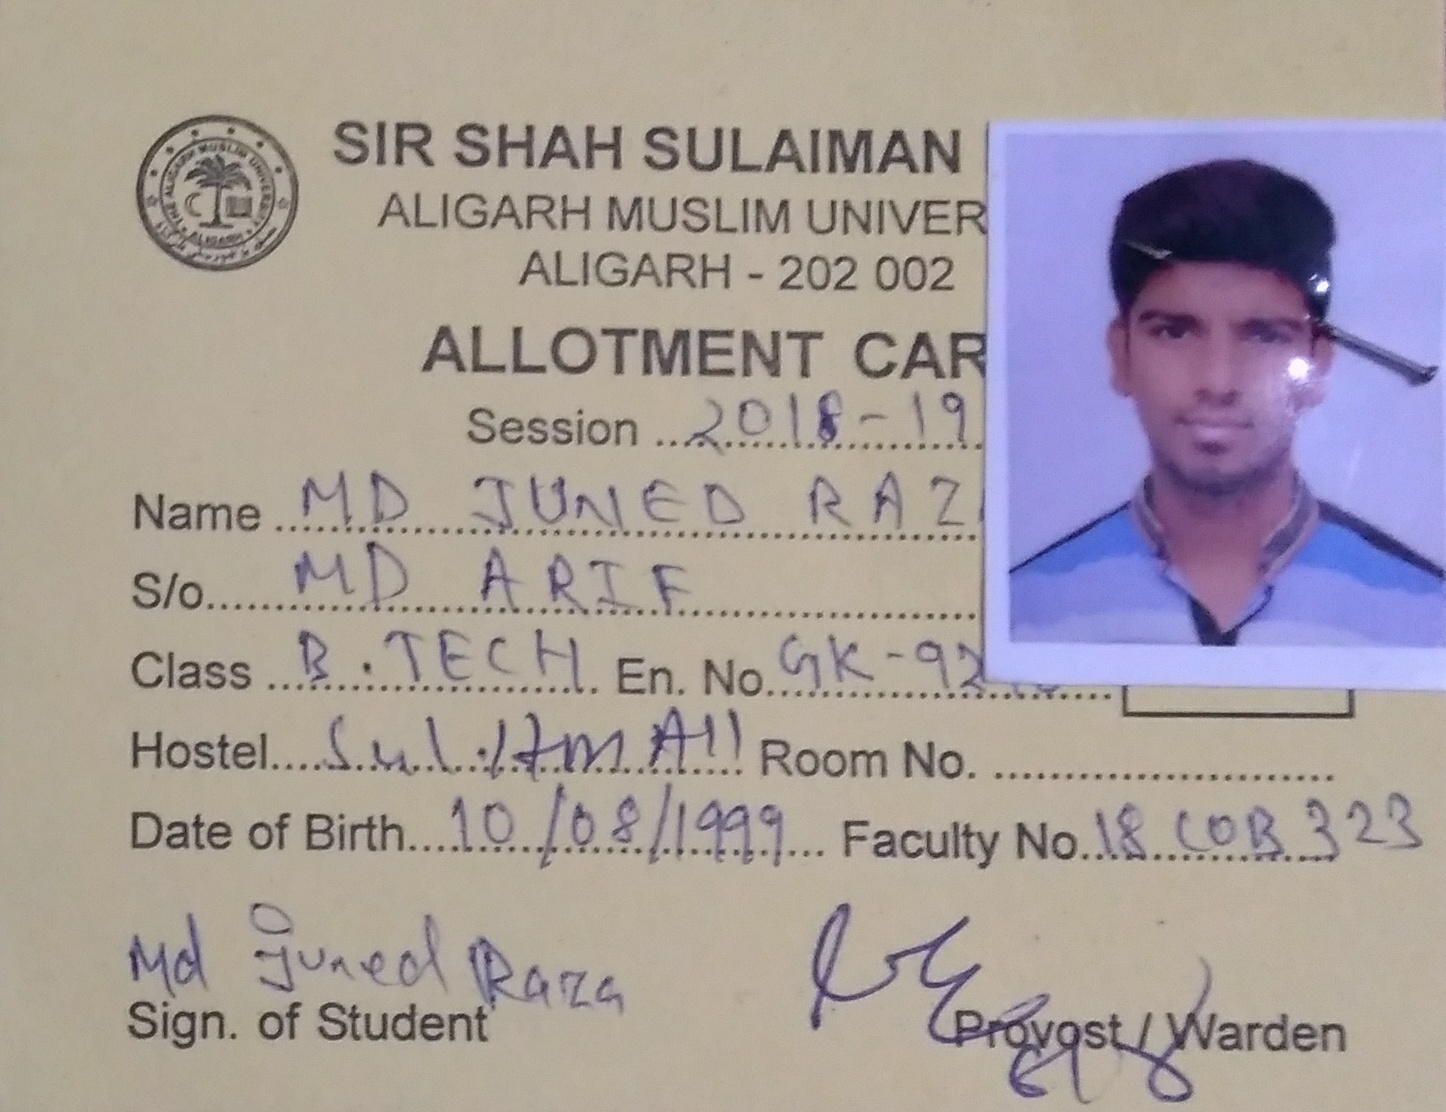 SIR SHAH SULAIMAN
ALIGARH MUSLIM UNIVER
ALIGARH - 202 002
ALLOTMENT CAR
Session ...2018-19
Name MD JUNED RAZ
S/o MD ARIF
Class B.TECH En. No. GK-92
Hostel Room No.
Date of Birth 10/08/1999 Faculty No. 18 COB 323
Md Juned Raza
Sign. of Student
Provost / Warden